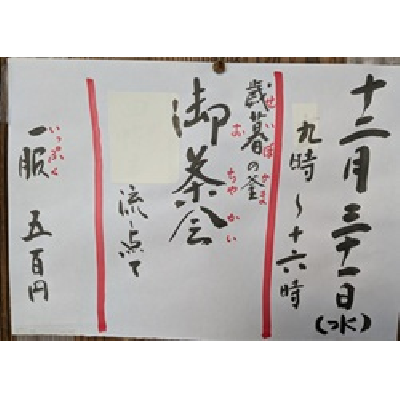 十二月三十一日(水)
九時～十六時
歳暮の釜
せいぼ かま
御茶会
お ちゃ かい
流し点て
一服 五百円
いっぷく